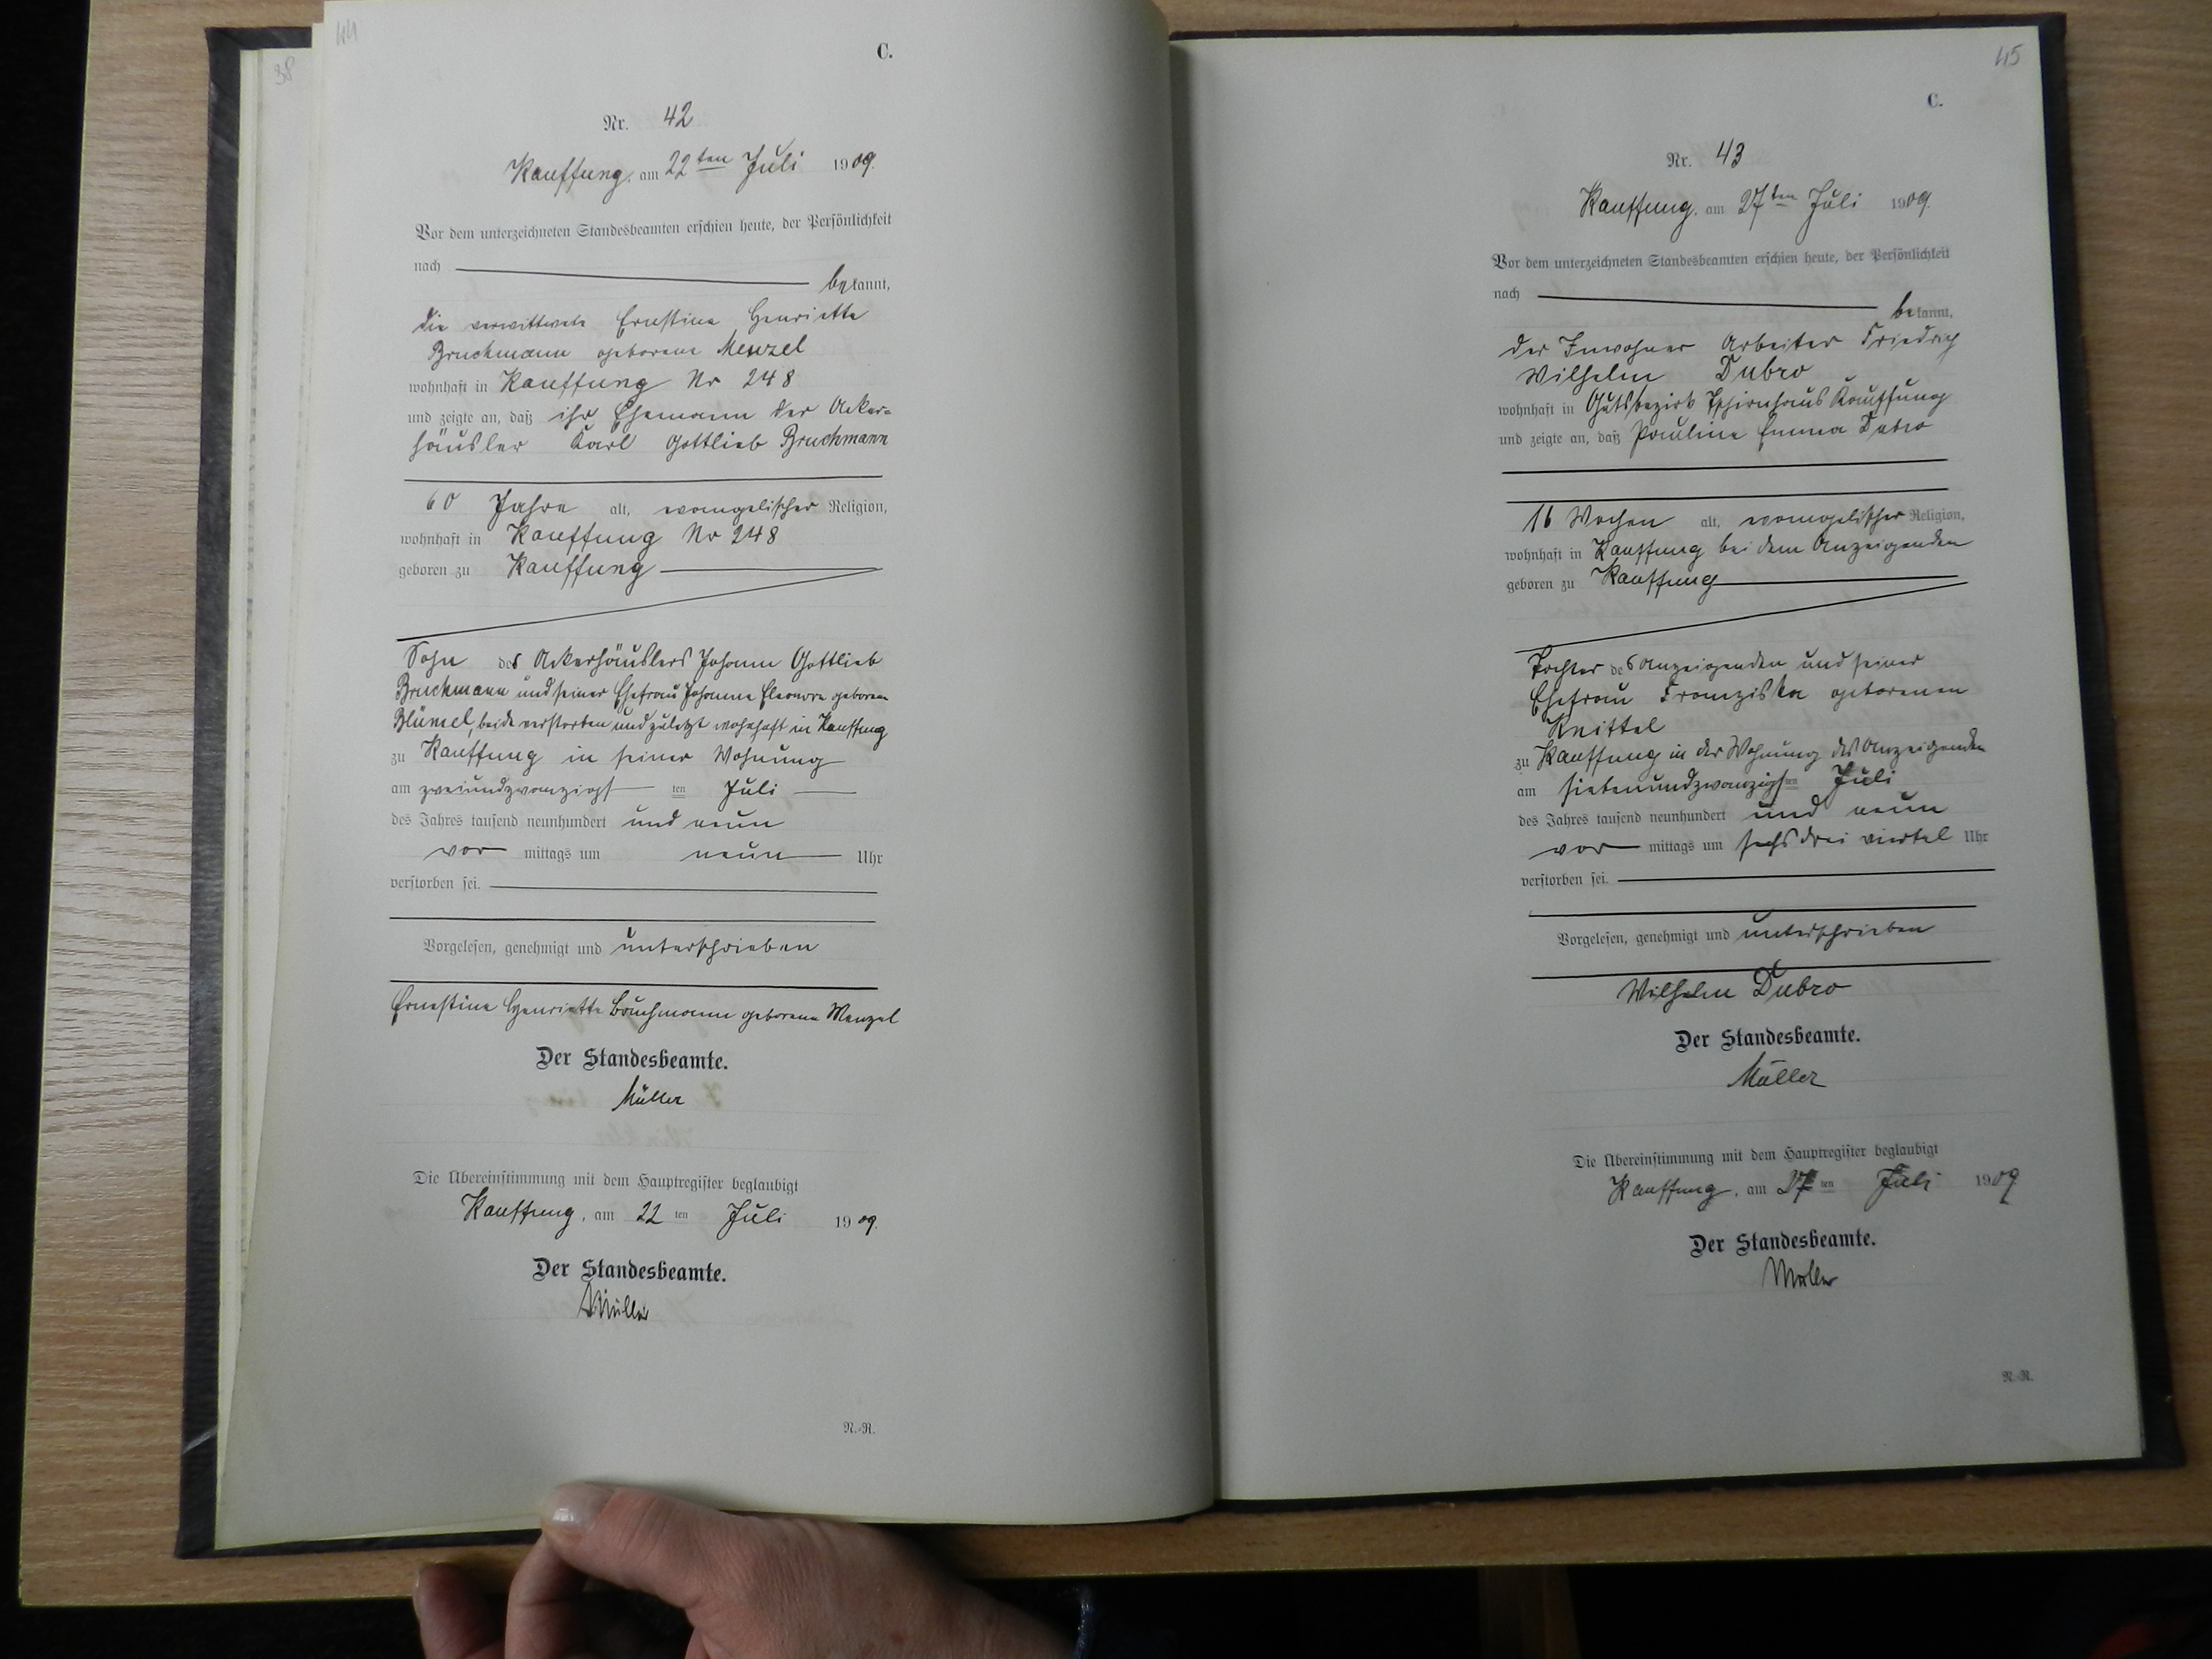 44
38
C.
Nr. 42
Kauffung, am 22ten Juli 1909.
Vor dem unterzeichneten Standesbeamten erschien heute, der Persönlichkeit
nach bekannt,
die verwittwete Ernstine Henriette
Bruchmann geborene Menzel
wohnhaft in Kauffung Nr 248
und zeigte an, daß ihr Ehemann der Acker-
häusler Karl Gottlieb Bruchmann
60 Jahre alt, evangelischer Religion,
wohnhaft in Kauffung Nr 248
geboren zu Kauffung
Sohn des Ackerhäuslers Johann Gottlieb
Bruchmann und seiner Ehefrau Johanne Eleonore geborene
Blümel, beide verstorben und zuletzt wohnhaft in Kauffung
zu Kauffung in seiner Wohnung
am zweiundzwanzigsten Juli
des Jahres tausend neunhundert und neun
vormittags um neun Uhr
verstorben sei.
Vorgelesen, genehmigt und unterschrieben
Ernestine Henriette Bruchmann geborene Menzel
Der Standesbeamte.
Müller
Die Übereinstimmung mit dem Hauptregister beglaubigt
Kauffung, am 22 ten Juli 1909.
Der Standesbeamte.
Müller
N.-R.
45
C.
Nr. 43
Kauffung, am 27ten Juli 1909.
Vor dem unterzeichneten Standesbeamten erschien heute, der Persönlichkeit
nach bekannt,
der Inwohner Arbeiter Friedrich
Wilhelm Dubro
wohnhaft in Gutsbezirk Tschirnhaus Kauffung
und zeigte an, daß Pauline Emma Dubro
16 Wochen alt, evangelischer Religion,
wohnhaft in Kauffung bei dem Anzeigenden
geboren zu Kauffung
Tochter des Anzeigenden und seiner
Ehefrau Franziska geborenen
Knittel
zu Kauffung in der Wohnung des Anzeigenden
am siebenundzwanzigsten Juli
des Jahres tausend neunhundert und neun
vormittags um sechs drei viertel Uhr
verstorben sei.
Vorgelesen, genehmigt und unterschrieben
Wilhelm Dubro
Der Standesbeamte.
Müller
Die Übereinstimmung mit dem Hauptregister beglaubigt
Kauffung, am 27 ten Juli 1909
Der Standesbeamte.
Müller
N.-R.